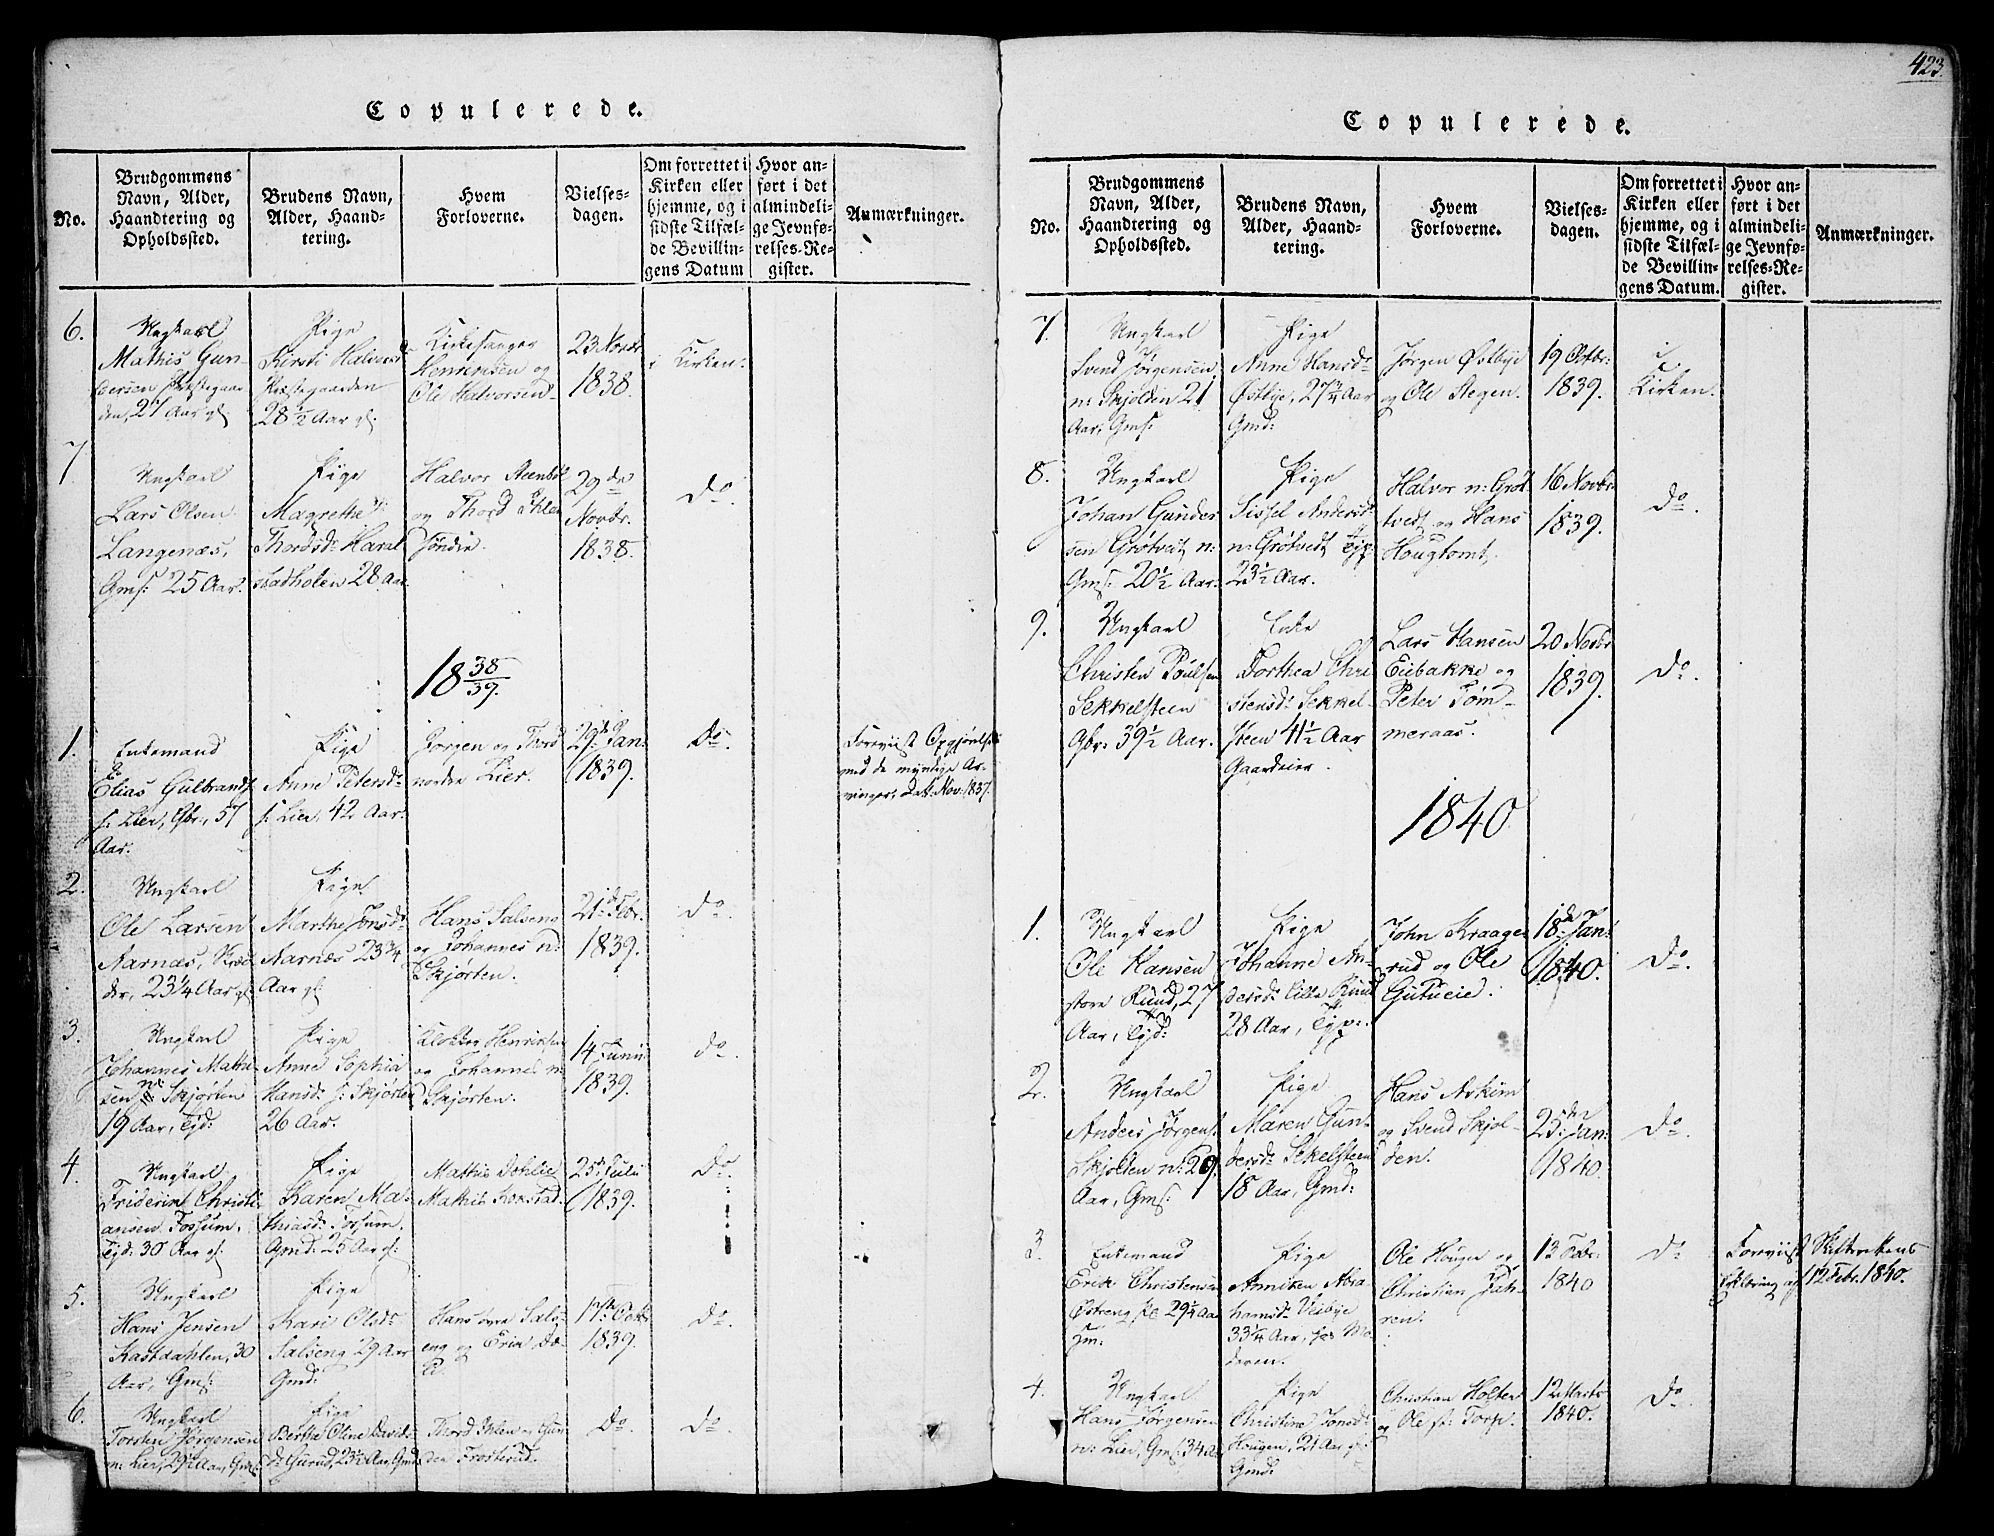 423.
Copulerede.
No.
Brudgommens
Navn, Alder,
Haandtering og
Opholdssted.
Brudens Navn,
Alder, Haand-
tering.
Hvem
Forloverne.
Vielses-
dagen.
Om forrettet i
Kirken eller
hjemme, og i
sidste Tilfæl-
de Bevillin-
gens Datum
Hvor an-
ført i det
almindeli-
ge Jevnfø-
relses-Re-
gister.
Anmærkninger.
6.
Ungkarl
Mathis Gun-
dersen Præstegaar
den, 27 Aar gl
Pige
Kirsti Halvorsd
Præstegaarden
28 1/2 Aar gl.
Kirkesanger
Henriksen og
Ole Halvorsen
23 Novbr
1838.
i Kirken.
7
Ungkarl
Lars Olsen
Langenæs,
Gms: 25 Aar.
Pige
Magrethe
Thordsd: Haral
stadholen 28 Aar
Halvor Steenbøl
og Thord Ihlen
søndre.
29de
Novbr.
1838.
Do.
18 38/39.
1.
Enkemand
Elias Gulbrands
s: Lier, Gbr., 57
Aar.
Pige
Anne Petersd:
s: Lier, 42 Aar.
Jørgen og Thord
nordre Lier.
29d Jan:
1839.
Do.
Foreviist Opgjørelse
med de myndige Ar-
vinger, Dat. Nov: 1837.
2.
Ungkarl
Ole Larsen
Narnæs, Skræd
der, 23 1/4 Aar gl:
Pige
Marthe Jonsd:
Narnæs 23 3/4
Aar gl
Hans Salseng
og Johannes n:
Skjørten.
21d Febr.
1839.
Do.
3.
Ungkarl
Johannes Mathi
sen n: Skjørten
19 Aar, Tjd:
Pige
Anne Sophia
Hansd: s: Skjørten
26 Aar.
Klokker Henriksen
og Johannes n:
Skjørten.
14 Junii
1839.
Do.
4.
Ungkarl
Friderik Christi
ansen Fossum,
Tjd: 30 Aar gl:
Pige
Karen Ma-
thiasd: Fossum.
Gmd: 25 Aar gl:
Mathis Dahlie
Mathis Korstad.
25d Juli
1839.
Do
5.
Ungkarl
Hans Jensen
Kastdahlen, 30
Aar, Gms:
Pige
Kari Olsd:
Salseng 29 Aar
Gmd:
Hans øvre Sals-
eng og Erik Dæ-
li.
17de Octbr
1839.
Do.
6.
Ungkarl
Torsten Jørgensen
n: Lier, 29 1/2 Aar, Gms:
Pige
Berthe Oline David-
d: Gurud, 23 1/2 Aar, Gmd
Thord Ihlen og Gun
der Frosterud.
Do.
Do.
Copulerede.
No.
Brudgommens
Navn, Alder,
Haandtering og
Opholdssted.
Brudens Navn,
Alder, Haand-
tering.
Hvem
Forloverne.
Vielses-
dagen.
Om forrettet i
Kirken eller
hjemme, og i
sidste Tilfæl-
de Bevillin-
gens Datum.
Hvor an-
ført i det
almindeli-
ge Jevnfø-
relses-Re-
gister.
Anmærkninger.
7.
Ungkarl
Svend Jørgensen
n: Skjolden 21
Aar, Gms:
Pige
Anne Hansd:
Østbye, 27 3/4 Aar
Gmd:
Jørgen Østbye
og Ole Stegen.
19 Octbr:
1839.
i
Kirken.
8.
Ungkarl
Johan Gunder
sen Grøtvedt n:
Gms: 20 1/2 Aar.
Pige
Sissel Andersd:
n: Grøtvedt Tjp:
23 1/2 Aar.
Halvor n: Grøt
tvedt og Hans
Hougtomt,
16 Novbr.
1839.
Do.
9.
Ungkarl
Christen Poulsen
Sekkelsteen
Gbr: 39 1/2 Aar.
Enke
Dorthea Chri
stensd: Sekkel-
steen 41 1/2 Aar
Gaardeier.
Lars Hansen
Eibakke og
Peter Tøm-
meraas.
20 Novbr
1839.
Do.
1840
1.
Ungkarl
Ole Hansen
store Ruud, 27
Aar, Tjd:
Pige
Johanne An-
dersd: Lille Ruud
28 Aar, Tjp:
John Kraage
rud og Ole
Gutueie.
18d Jan:
1840.
Do.
2.
Ungkarl
Anders Jørgens:
Skjolden n: 29.
Aar, Gms:
Pige
Maren Gun-
dersd: Sekelsteen
18 Aar, Gmd:
Hans Askim
og Svend Skjol-
den.
25de Jan:
1840.
Do.
3.
Enkemand
Erik Christensen
Østreng, 29 1/4 Aar
Pige
Anniken Abra
hamsd: Veibye
33 1/4 Aar, hos Mo
deren.
Ole Hougen og
Christian Jah-
ren.
13 Febr.
1840
Do
Foreviist Skifterettens
Erklæring af 12 Febr. 1840.
4.
Ungkarl
Hans Jørgensen
n: Lier, Gms: 34 Aar
Pige
Christine Jonsd:
Hougen, 21 Aar gl:
Gmd:
Christian Holten
og Ole s: Torp.
12 Marts
1840.
Do